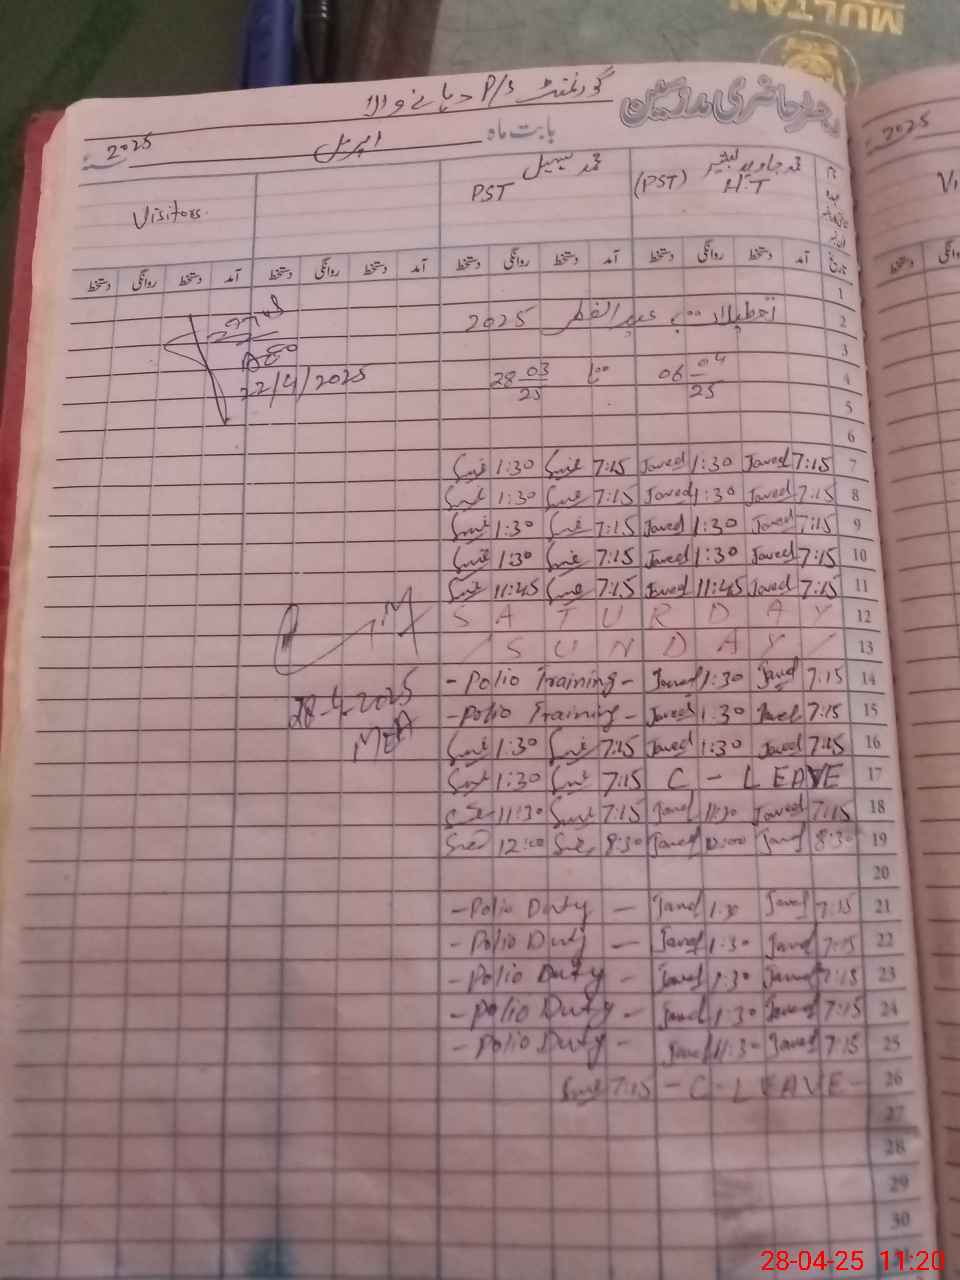 MULTAN
رجسٹر حاضری مدرسین
گورنمنٹ P/S
بابت ماہ اپریل 2025
2025
محمد جاوید H.T (PST)
محمد سہیل PST
Visitors
تاریخ آمد دستخط روانگی دستخط آمد دستخط روانگی دستخط آمد دستخط روانگی دستخط آمد دستخط روانگی دستخط
1
2 تعطیلات عید الفطر 2025
3
4 06 04 25 تا 28 03 25
AEO
22/4/2025
5
6
7 7:15 Javed 1:30 Javed 7:15 1:30
8 7:15 Javed 1:30 Javed 7:15 1:30
9 7:15 Javed 1:30 Javed 7:15 1:30
10 7:15 Javed 1:30 Javed 7:15 1:30
11 7:15 Javed 11:45 Javed 7:15 11:45
12 SATURDAY
13 SUNDAY
14 7:15 Javed 1:30 Javed - Polio Training -
15 7:15 Javed 1:30 Javed - Polio Training -
28-4-2025
MEA
16 7:15 Javed 1:30 Javed 7:15 1:30
17 C - LEAVE 7:15 1:30
18 7:15 Javed 11:30 Javed 7:15 11:30
19 8:30 Javed 12:00 Javed 8:30 12:00
20
21 7:15 Javed 1:30 Javed - Polio Duty -
22 7:15 Javed 1:30 Javed - Polio Duty -
23 7:15 Javed 1:30 Javed - Polio Duty -
24 7:15 Javed 1:30 Javed - Polio Duty -
25 7:15 Javed 11:30 Javed - Polio Duty -
26 - C - LEAVE - 7:15
27
28
29
30
31
28-04-25 11:20